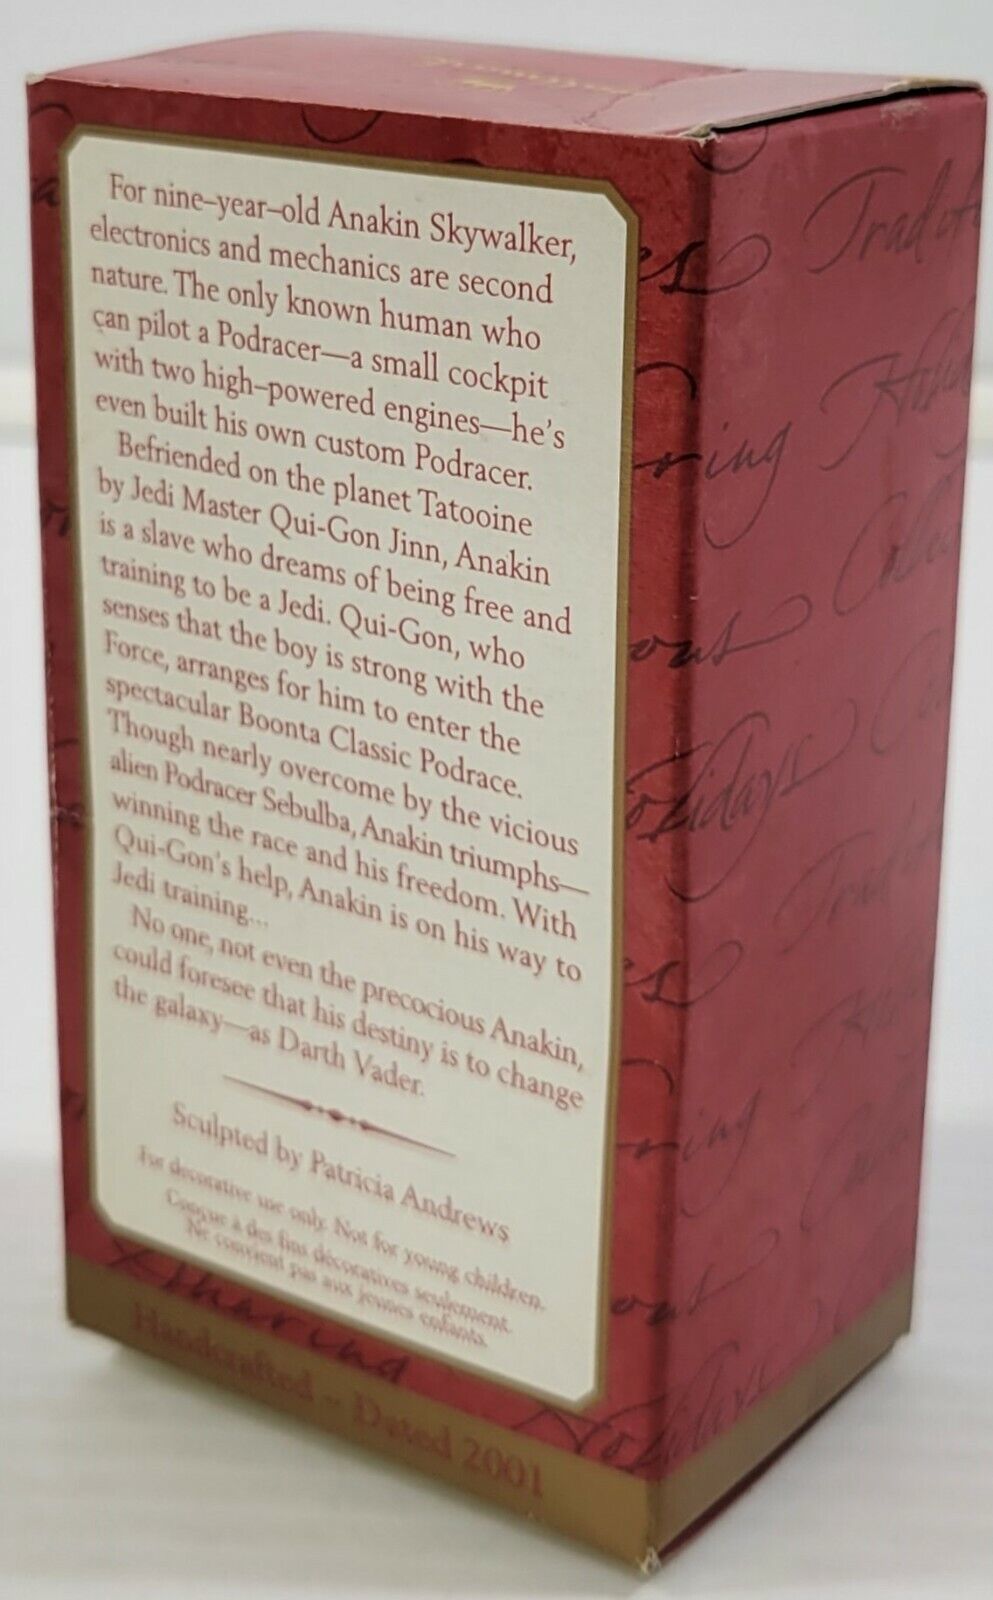 For nine–year–old Anakin Skywalker,
electronics and mechanics are second
nature. The only known human who
can pilot a Podracer—a small cockpit
with two high–powered engines—he's
even built his own custom Podracer.
Befriended on the planet Tatooine
by Jedi Master Qui-Gon Jinn, Anakin
is a slave who dreams of being free and
training to be a Jedi. Qui-Gon, who
senses that the boy is strong with the
Force, arranges for him to enter the
spectacular Boonta Classic Podrace.
Though nearly overcome by the vicious
alien Podracer Sebulba, Anakin triumphs—
winning the race and his freedom. With
Qui-Gon's help, Anakin is on his way to
Jedi training...
No one, not even the precocious Anakin,
could foresee that his destiny is to change
the galaxy—as Darth Vader.
Sculpted by Patricia Andrews
For decorative use only. Not for young children.
Conçue à des fins décoratives seulement.
Ne convient pas aux jeunes enfants.
sharing
Handcrafted – Dated 2001
Holidays
Holidays